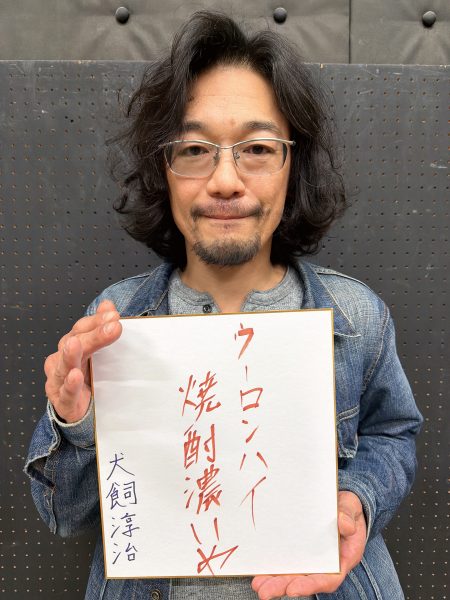 ウーロンハイ
焼酎濃いめ
犬飼淳治